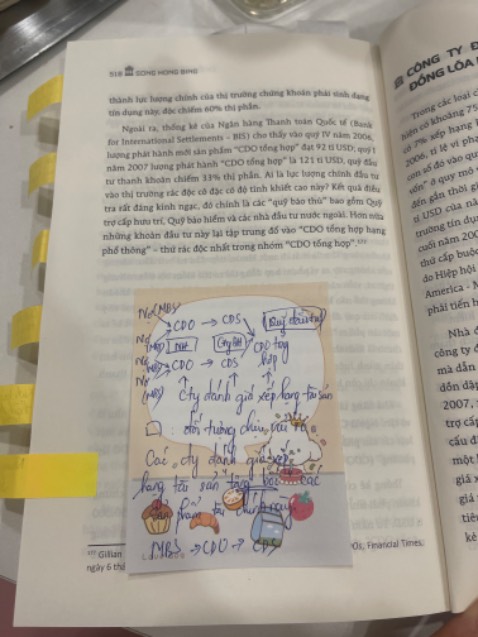 518 SONG HONG BING
thành lực lượng chính của thị trường chứng khoán phái sinh dạng
tín dụng này, độc chiếm 60% thị phần.
Ngoài ra, thống kê của Ngân hàng Thanh toán Quốc tế (Bank
for International Settlements - BIS) cho thấy vào quý IV năm 2006,
lượng phát hành mới sản phẩm "CDO tổng hợp" đạt 92 tỉ USD; quý I
năm 2007 lượng phát hành "CDO tổng hợp" là 121 tỉ USD, quỹ đầu
tư thanh khoản chiếm 33% thị phần. Ai là lực lượng chính đầu tư
vào thị trường rác độc cô đặc có độ tinh khiết cao này? Kết quả điều
tra rất đáng kinh ngạc, đó chính là các "quỹ bảo thủ" bao gồm Quỹ
trợ cấp hưu trí, Quỹ bảo hiểm và các nhà đầu tư nước ngoài. Hơn nữa
những khoản đầu tư này lại tập trung đổ vào "CDO tổng hợp hạng
phổ thông" - thứ rác độc nhất trong nhóm "CDO tổng hợp".
Nợ (MBS)
CDO → CDS
Nợ (MBS)
CDO tổng
hợp
Nợ (MBS) CDO → CDS
Nợ
(MBS) Cty đánh giá xếp hạng tài sản
: đối tượng chịu rủi ro
Các cty đánh giá xếp
hạng tài sản các
sản phẩm tài chính
MBS → CDO → CDS
Gillian
ngày 6 thá
CDOs, Financial Times,
CÔNG TY Đ
ĐỒNG LÕA
Trong các loại c
hiện có khoảng 75
có 7% xếp hạng
2006, tỉ lệ vi phạ
con số đó vào qu
vốn" ở quy mô
đến gần thời gi
tỉ USD của nă
trường tín dụ
cuối năm 200
thứ cấp buộc
do Hiệp hội
America - M
phải tiến h
Nhà đ
công ty đ
mà dẫn
dồn dập
2007,
trợ cấp
cấu đ
một
giá x
giá
tiê
kê